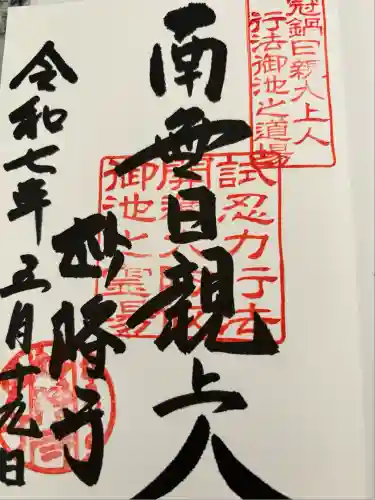 冠鍋日親大上人
行法御池之道場
南無日親上人
試忍力行法
御池之霊場
妙勝寺
令和七年五月十九日